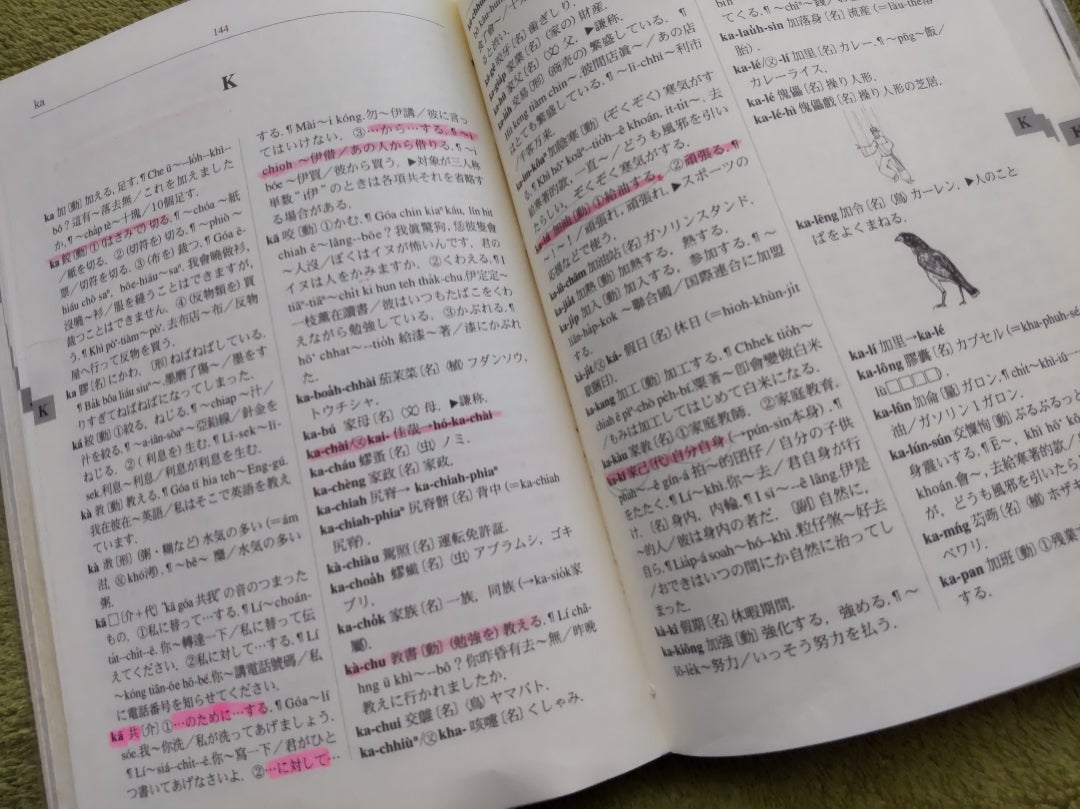 144
ka
K
ka 加〔動〕加える, 足す. ¶ Che ū～--lo̍h--khì--
bô？這有～落去無／これを加えました
か. ¶～cha̍p tè～十塊／10個足す.
ka 鉸〔動〕①(はさみで)切る. ¶～chóa～紙
／紙を切る. ②(切符を)切る. ¶～phiò～
票／切符を切る. ③(布を)裁つ. ¶Góa ē-
hiáu chò saⁿ, bōe-hiáu～saⁿ. 我會曉做衫,
沒曉～衫／服を縫うことはできますが,
裁つことはできません. ④(反物類を)買
う. ¶Khì pò͘-tiàm～pò͘. 去布店～布／反物
屋へ行って反物を買う.
ka 膠〔名〕にかわ. 〔形〕ねばねばしている.
りすぎてねばねばになってしまった.
ká 絞〔動〕①絞る, ねじる. ¶～chiap～汁／
汁を絞る. ¶～a-iân-sòaⁿ～亞鉛線／針金を
ねじる. ②(利息を)生む. ¶Lī-sek～lī-
sek 利息～利息／利息が利息を生む.
kà 教〔動〕教える. ¶Góa tī hia teh～Eng-gú.
我在彼在～英語／私はそこで英語を教え
ています.
水気の多い(＝ám
¶～bê～糜／水気の多い
粥.
kā □〔介＋代〕"kā góa 共我"の音のつまった
もの. ①私に替って…する. ¶Lí～choán-
ta̍t--chi̍t--ē. 你～轉達一下／私に替って伝
えてください. ②私に対して…する. ¶Lí
～kóng tiān-ōe hō-bé. 你～講電話號碼／私
に電話番号を知らせてください.
kā 共〔介〕①…のために…する. ¶Góa～lí
sóe. 我～你洗／私が洗ってあげましょう.
¶Lí～siá--chi̍t--ē. 你～寫一下／君がひと
つ書いてあげなさいよ. ②…に対して…
する. ¶Mài～i kóng. 勿～伊講／彼に言っ
てはいけない. ③…から…する. ¶～i
chioh ～伊借／あの人から借りる. ¶～i
bóe ～伊買／彼から買う. ▶対象が三人称
単数"i伊"のときは各項共それを省略す
る場合がある.
kā 咬〔動〕①かむ. ¶Góa chin kiaⁿ káu, lín hit
chiah ē～lâng--bōe？我眞驚狗, 恁彼隻會
～人沒／ぼくはイヌが怖いんです, 君の
イヌは人をかみますか. ②くわえる. ¶I
tiāⁿ-tiāⁿ～chi̍t ki hun teh tha̍k-chu. 伊定定～
一枝薰在讀書／彼はいつもたばこをくわ
えながら勉強している. ③かぶれる. ¶
hō͘ chhat～--tio̍h 給漆～著／漆にかぶれ
た.
ka-boa̍h-chhài 茄茉菜〔名〕〔植〕フダンソウ,
トウチシャ.
ka-bú 家母〔名〕〔文〕母. ▶謙称.
ka-chài/又kai- 佳哉→hó-ka-chài
ka-cháu 蟉蚤〔名〕〔虫〕ノミ.
ka-chèng 家政〔名〕家政.
ka-chiah 尻脊→ ka-chiah-phiaⁿ
ka-chiah-phiaⁿ 尻脊骿〔名〕背中 (＝ka-chiah
尻脊).
kà-chiàu 駕照〔名〕運転免許証.
ka-choa̍h 蟉蠽〔名〕〔虫〕アブラムシ, ゴキ
ブリ.
ka-cho̍k 家族〔名〕一族, 同族 (→ka-sio̍k家
屬).
kà-chu 教書〔動〕(勉強を)教える. ¶Lí chā-
hng ū khì～--bô？你昨昏有去～無／昨晩
教えに行かれましたか.
ka-chui 交雖〔名〕〔鳥〕ヤマバト.
ka-chhiùⁿ/又kha- 咳嚏〔名〕くしゃみ.
歯ぎしり.
家業〔名〕(家の)財産.
家父〔名〕〔文〕父. ▶謙称.
交易〔形〕(商売の)繁盛している. ¶
hit keng tiàm chin～. 彼間店眞～／あの店
はとても繁盛している. ¶～lī-chhī～利市
千客万来.
加陰寒〔動〕(ぞくぞく)寒気がす
給寒著的款, 一直～／どうも風邪を引い
たらしい, ぞくぞく寒気がする.
ka-iû 加油〔動〕①給油する. ②頑張る. ¶
～！／頑張れ, 頑張れ. ▶スポーツの
応援などで使う.
ka-iû-chām 加油站〔名〕ガソリンスタンド.
ka-jia̍t 加熱〔動〕加熱する, 熱する.
ka-ji̍p 加入〔動〕加入する, 参加する. ¶～
liân-ha̍p-kok ～聯合國／国際連合に加盟
する.
kà-ji̍t/又ká- 假日〔名〕休日 (＝hioh-khùn-ji̍t
歇睏日).
ka-kang 加工〔動〕加工する. ¶Chhek tio̍h～
chiah ē piⁿ-chò pe̍h-bí. 粟著～卽會變做白米
／もみは加工してはじめて白米になる.
ka-kàu 家教〔名〕①家庭教師. ②家庭教育.
ka-kī 家己〔代〕自分自身 (→pún-sin本身). ¶
phah～ê gín-á 拍～的囝仔／自分の子供
をたたく. ¶Lí～khì. 你～去／君自身が行
け. 〔名〕身内, 内輪. ¶I sī～--ê lâng. 伊是
～的人／彼は身内の者だ. 〔副〕自然に,
自ら. ¶Lia̍p-á soah～hó--khì. 粒仔煞～好去
／おできはいつの間にか自然に治ってし
まった.
kà-kî 假期〔名〕休暇期間.
ka-kiông 加強〔動〕強化する, 強める. ¶～
ló͘-le̍k～努力／いっそう努力を払う.
ka-lau̍h-sin 加落身〔名〕流産 (＝lāu-thē落
胎).
ka-lé/又-lí 加里〔名〕カレー. ¶～pn̄g～飯／
カレーライス.
ka-lé 傀儡〔名〕操り人形.
ka-lé-hì 傀儡戲〔名〕操り人形の芝居.
K
ka-lēng 加令〔名〕〔鳥〕カーレン. ▶人のこと
ばをよくまねる.
ka-lí 加里→ka-lé
ka-lông 膠囊〔名〕カプセル (＝kha-phuh-sé-
lù□□□□).
ka-lûn 加侖〔量〕ガロン.
油／ガソリン1ガロン.
ka-lún-sún 交懍恂〔動〕ぶるぶるっと
身震いする.
khoán. 會～, 去給寒著的款／
が, どうも風邪を引いたら
ホザキ
ベワリ.
ka-pan 加班〔動〕①残業
する.
K